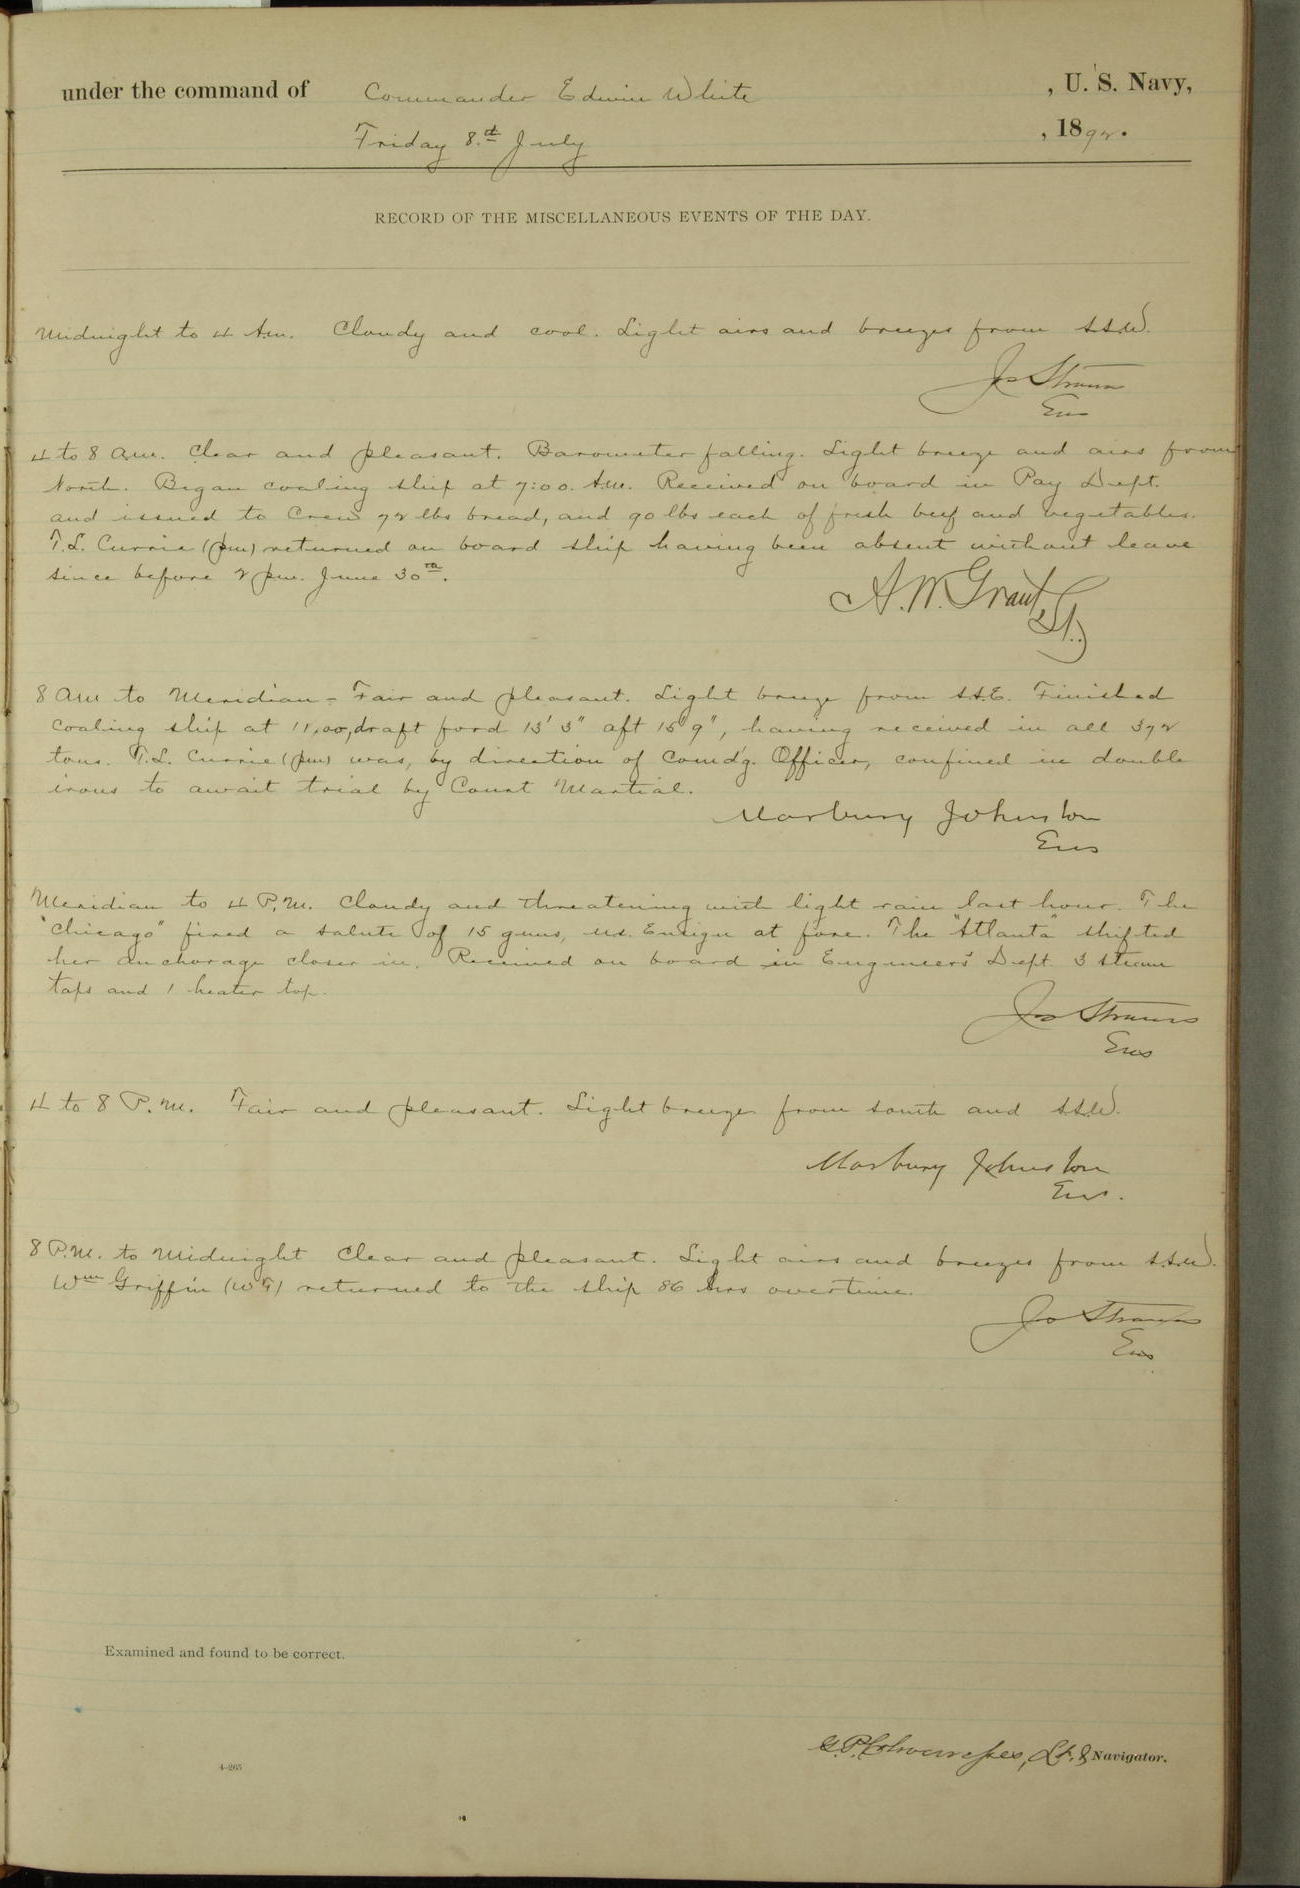 under the command of Commander Edwin White , U. S. Navy,
Friday 8th July , 1892.
RECORD OF THE MISCELLANEOUS EVENTS OF THE DAY.
Midnight to 4 A.m. Cloudy and cool. Light airs and breezes from S.S.W.
Jos Strauss
Ens
4 to 8 a.m. Clear and pleasant. Barometer falling. Light breeze and airs from
North. Began coaling ship at 7:00. A.m. Received on board in Pay Dept.
and issued to Crew 72 lbs bread, and 90 lbs each of fresh beef and vegetables.
T.L. Currie (pm) returned on board ship having been absent without leave
since before 2 pm. June 30th.
A. W. Grant
Lt.
8 am to Meridian - Fair and pleasant. Light breeze from S.S.E. Finished
coaling ship at 11,00, draft ford 13' 3" aft 15' 9", having received in all 372
tons. T.L. Currie (pm) was, by direction of Comd'g. Officer, confined in double
irons to await trial by Court Martial.
Marbury Johnston
Ens
Meridian to 4 P.M. Cloudy and threatening with light rain last hour. The
"Chicago" fired a salute of 15 guns, U.S. Ensign at fore. The "Atlanta" shifted
her anchorage closer in. Received on board in Engineers' Dept. 3 steam
taps and 1 heater top.
Jos Strauss
Ens
4 to 8 P.M. Fair and pleasant. Light breeze from south and S.S.W.
Marbury Johnston
Ens.
8 P.M. to Midnight Clear and pleasant. Light airs and breezes from S.S.W.
Wm Griffin (WT) returned to the ship 86 hrs overtime.
Jos Strauss
Ens
Examined and found to be correct.
Lt. & Navigator.
4-265